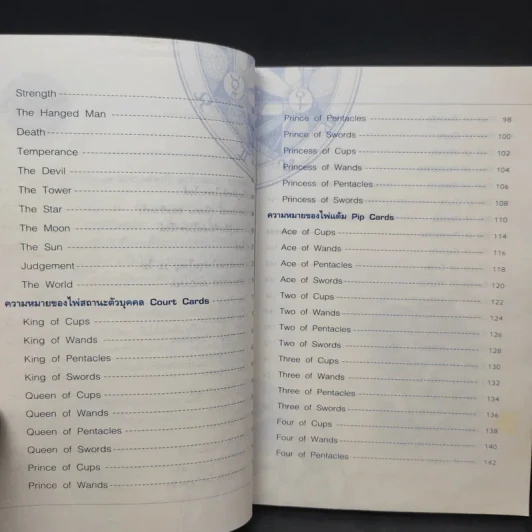 Strength
The Hanged Man
Death
Temperance
The Devil
The Tower
The Star
The Moon
The Sun
Judgement
The World
ความหมายของไพ่สถานะตัวบุคคล Court Cards
King of Cups
King of Wands
King of Pentacles
King of Swords
Queen of Cups
Queen of Wands
Queen of Pentacles
Queen of Swords
Prince of Cups
Prince of Wands
Prince of Pentacles 98
Prince of Swords 100
Princess of Cups 102
Princess of Wands 104
Princess of Pentacles 106
Princess of Swords 108
ความหมายของไพ่แต้ม Pip Cards 110
Ace of Cups 114
Ace of Wands 116
Ace of Pentacles 118
Ace of Swords 120
Two of Cups 122
Two of Wands 124
Two of Pentacles 126
Two of Swords 128
Three of Cups 130
Three of Wands 132
Three of Pentacles 134
Three of Swords 136
Four of Cups 138
Four of Wands 140
Four of Pentacles 142